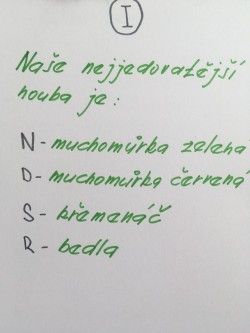 I
Naše nejjedovatější
houba je:
N - muchomůrka zelená
D - muchomůrka červená
S - křemenáč
R - bedla